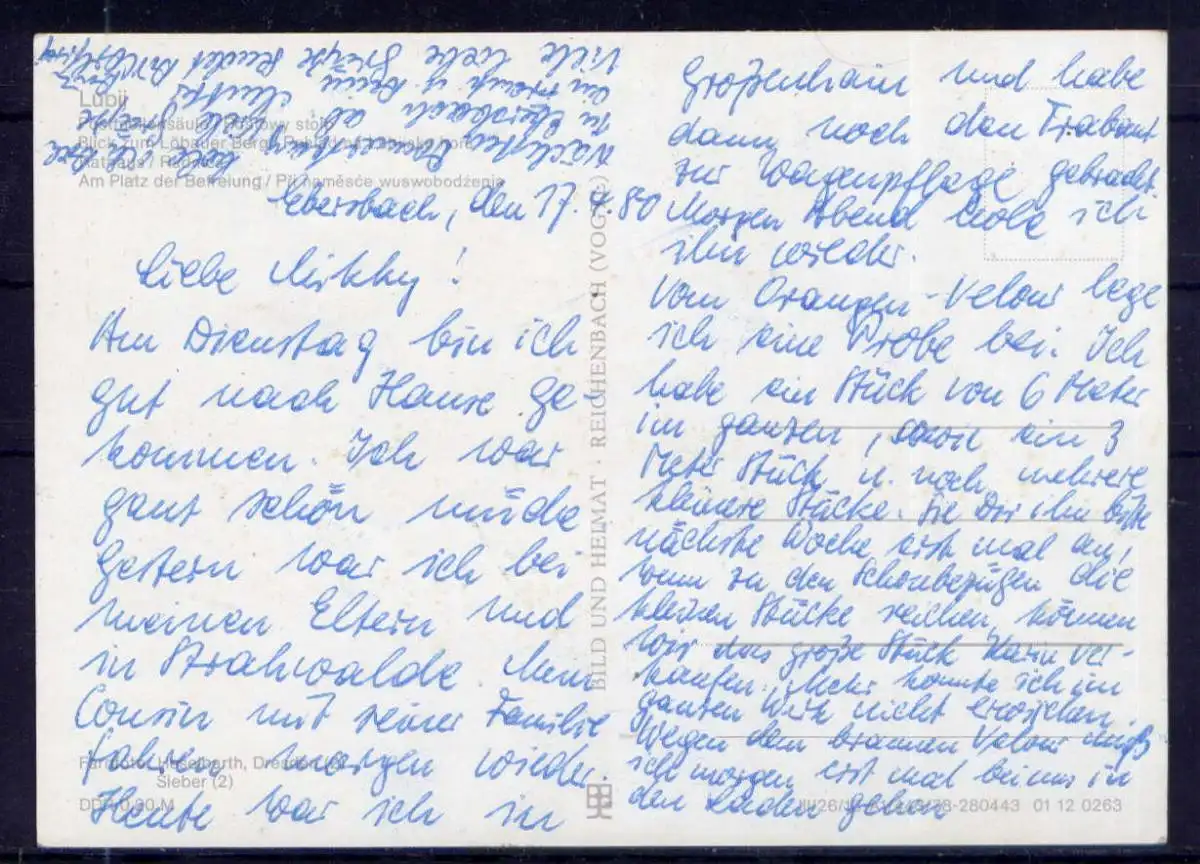 Löbau / Lubij
Am Platz der Befreiung / Při naměsće wuswobodźenja
Ebersbach, den 17. 80
Liebe Mikky!
Am Dienstag bin ich
gut nach Hause ge-
kommen. Ich war
ganz schön müde
Gestern war ich bei
meinen Eltern und
in Strahwalde. Mein
Cousin mit seiner Familie
fahren morgen wieder.
Heute war ich in
Großenhain und habe
dann noch den Trabant
zur Wagenpflege gebracht.
Morgen Abend hole ich
ihn wieder.
Vom Orangen-Velour lege
ich eine Probe bei. Ich
habe ein Stück von 6 Meter
im ganzen, sowie ein 3
Meter Stück u. noch mehrere
kleinere Stücke. Sie Dir ihn bitte
nächste Woche erst mal an,
wenn zu den Schonbezügen die
kleinen Stücke reichen, können
wir das große Stück Karin ver-
kaufen. Mehr konnte ich im
ganzen Werk nicht erwischen.
Wegen dem braunen Velour muß
ich morgen erst mal bei uns in
den Laden gehen
Viele liebe Grüße sendet
BILD UND HEIMAT · REICHENBACH (VOGTL)
Farbfotos: Heselbarth, Dresden
Sieber (2)
DDR 0,30 M
280443 01 12 0263